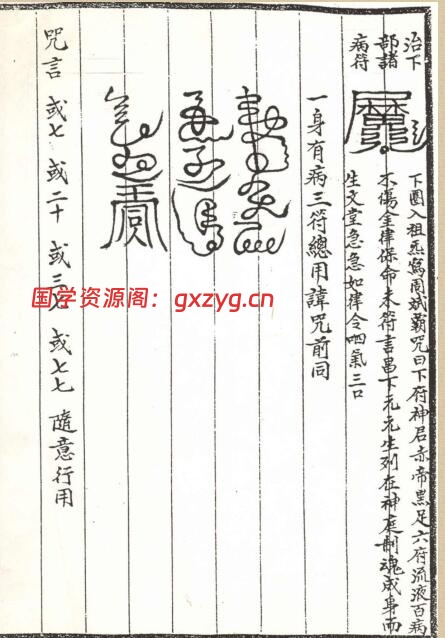 治下
部諸
病符
下圈入祖炁寫周斌霸咒曰下府神君赤帝黑足六府流液百病
不傷金律保命未符言昌下元元生列在神庭制魂成身而
生文堂急急如律令呬氣三口
一身有病三符總用諱咒前同
咒言 或七 或二十 或三七 或七七 隨意行用
国学资源阁：gxzyg.cn